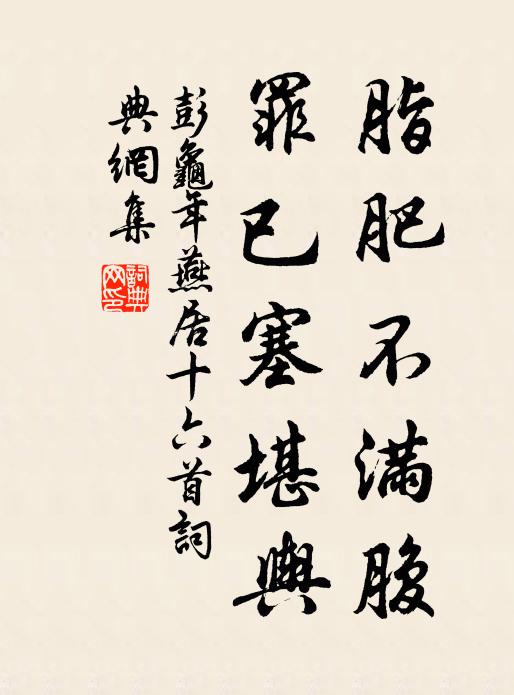 脂肥不滿腹
罪已塞堪輿
彭龜年燕居十六首詞
典網集
詞典網印